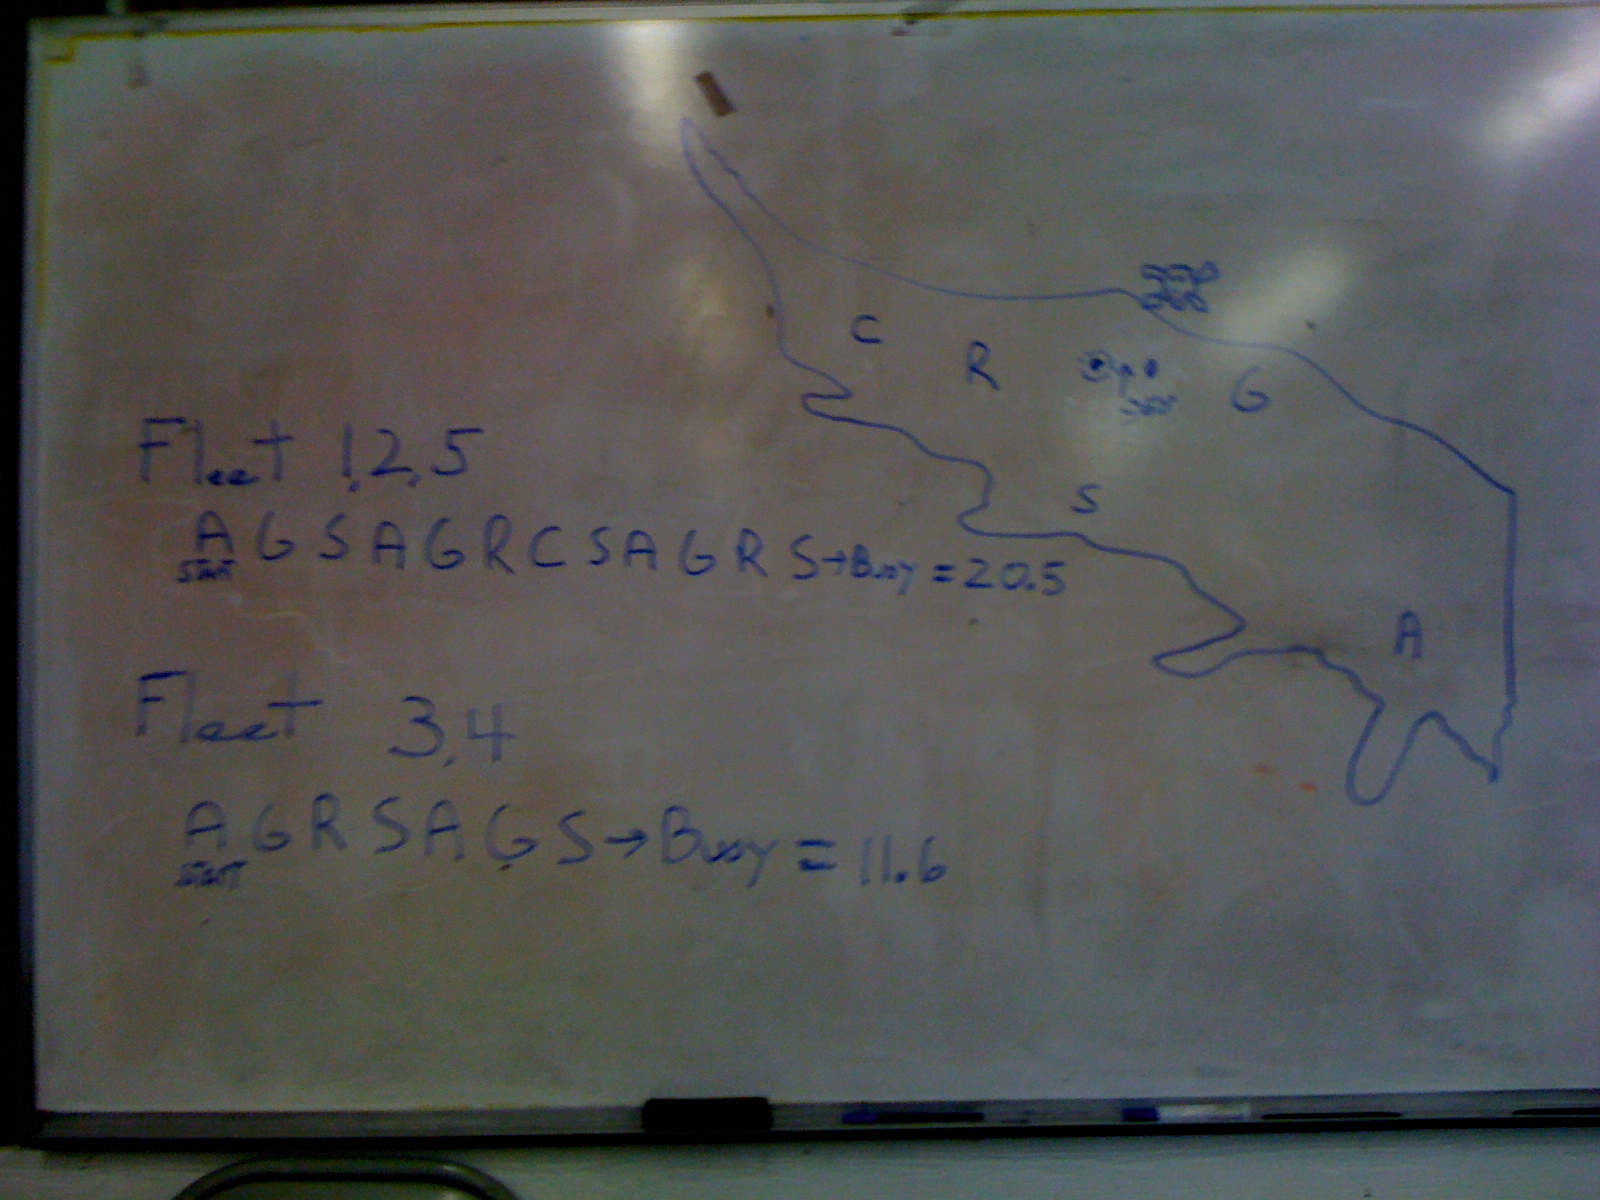 C
R
G
Fleet 1,2,5
S
A G S A G R C S A G R S→Busy = 20.5
start
A
Fleet 3,4
A G R S A G S → Busy = 11.6
start